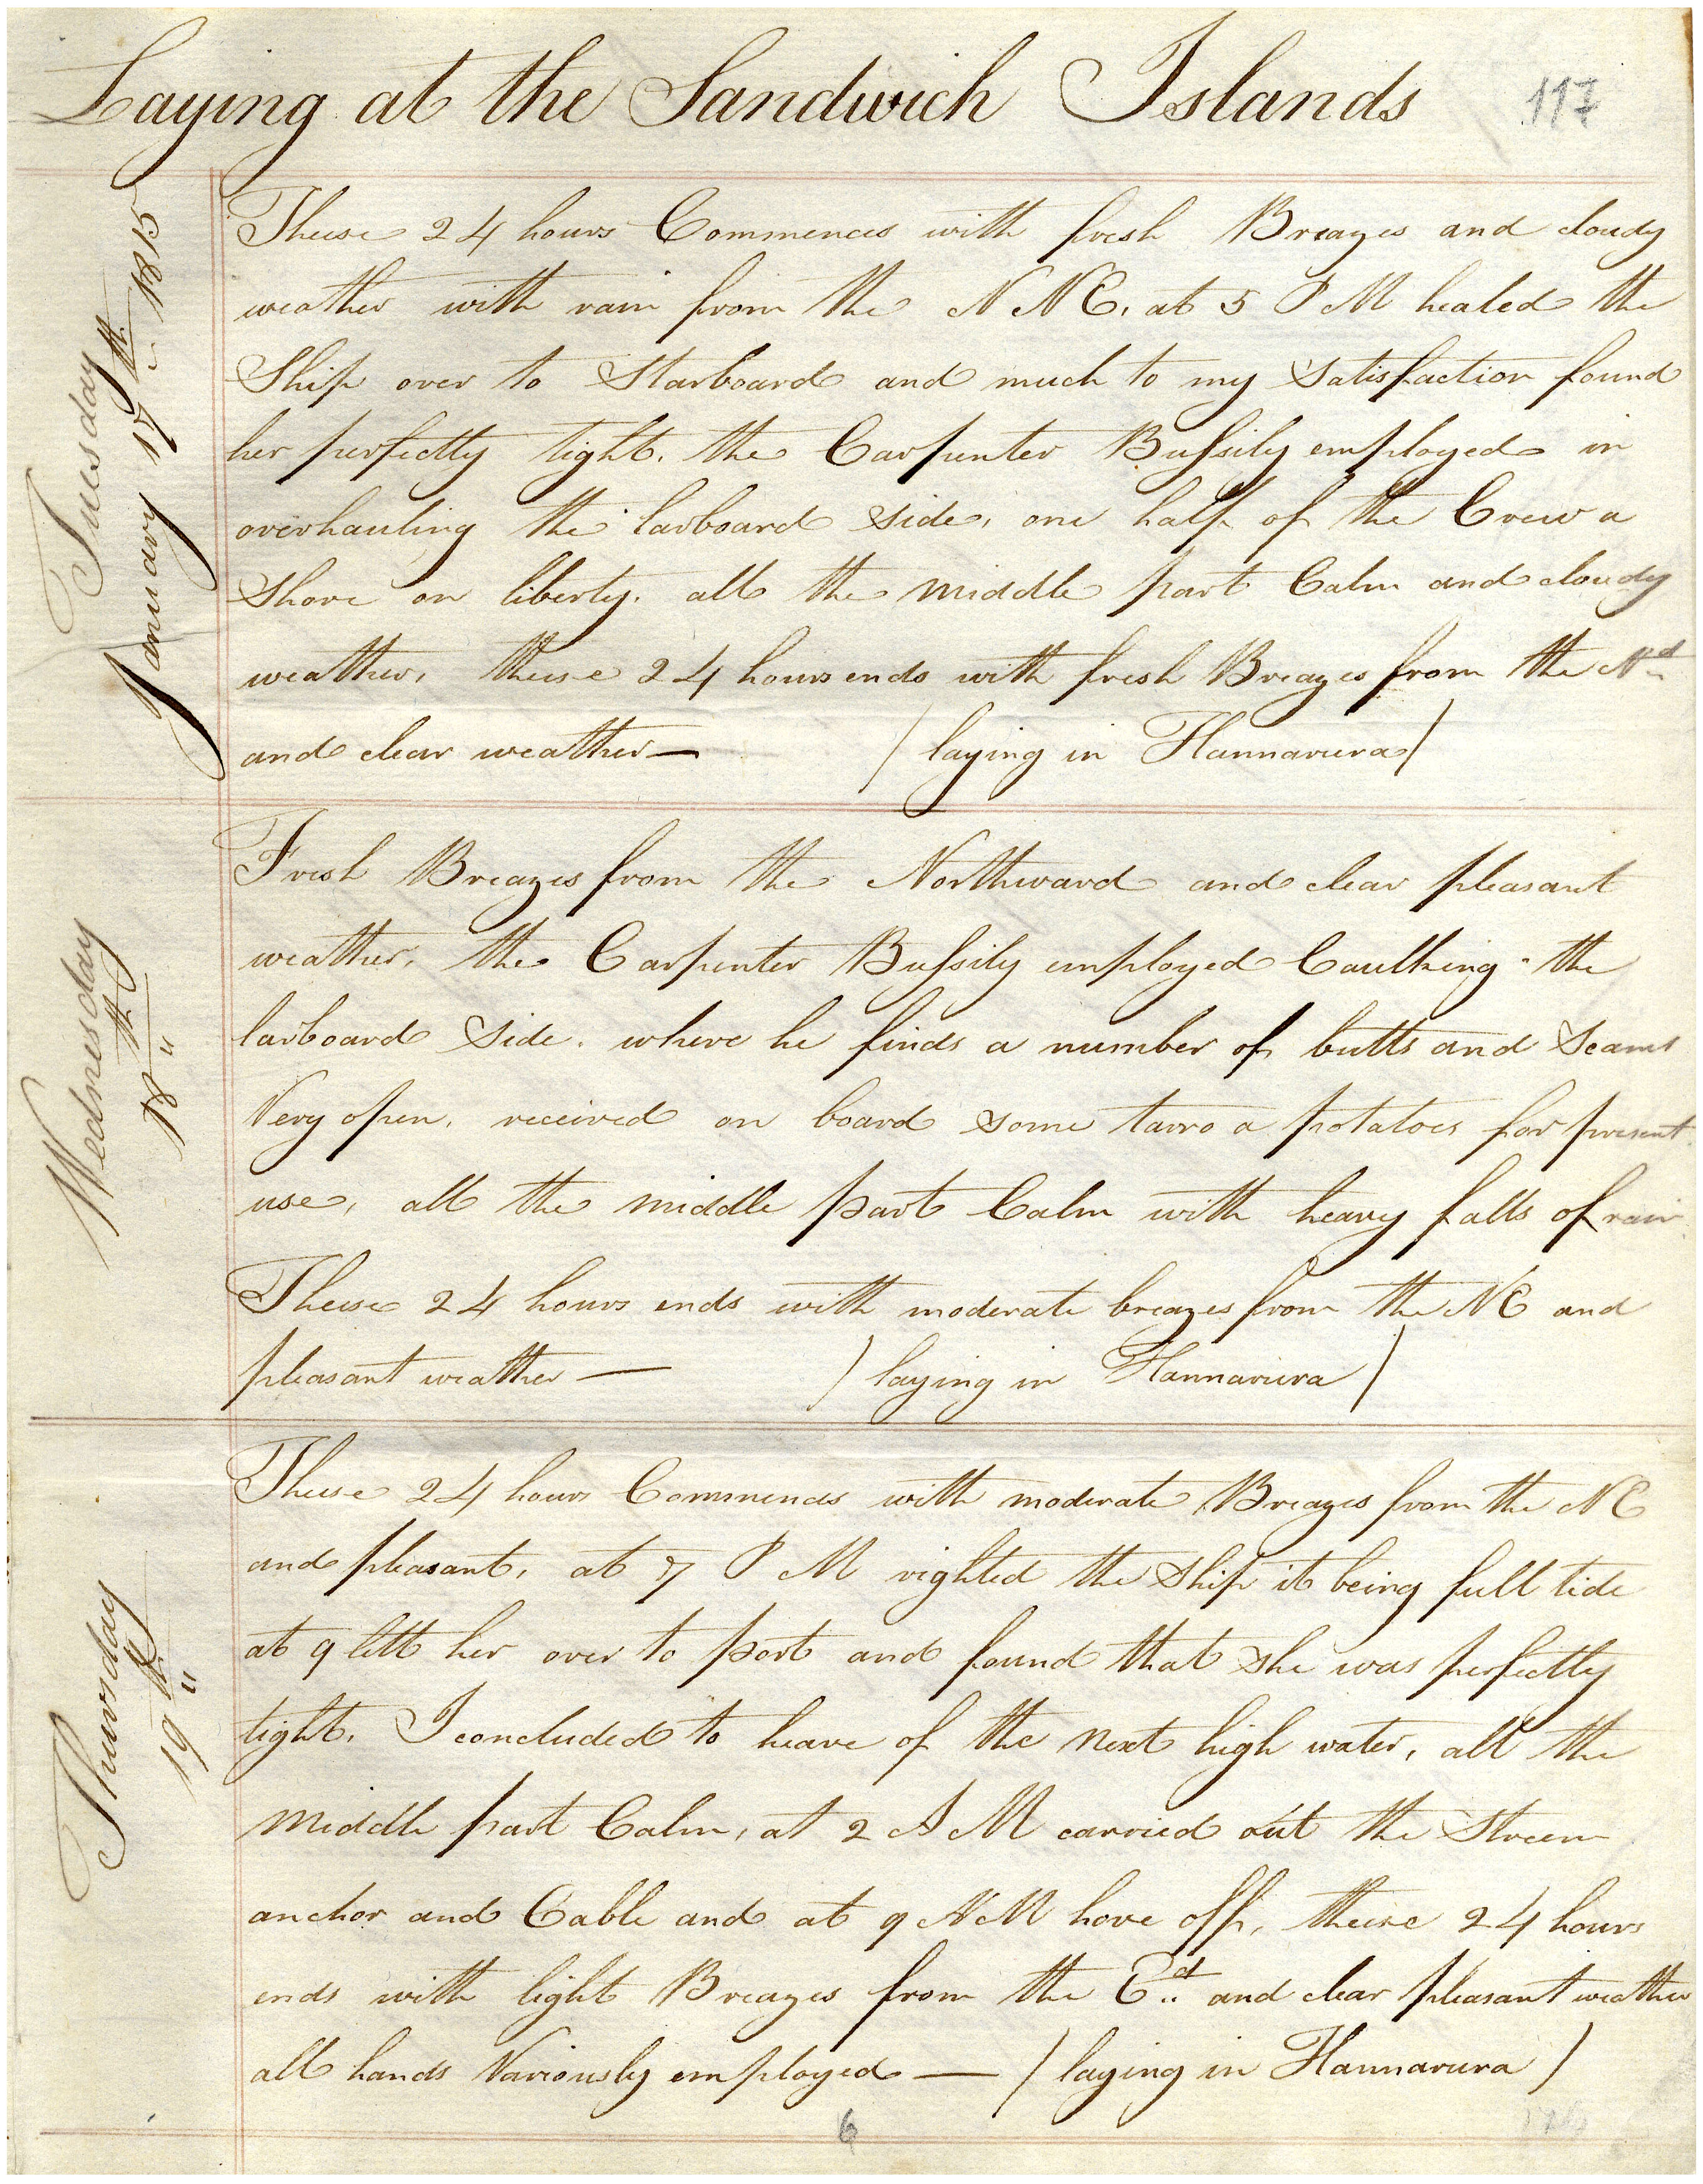 Laying at the Sandwich Islands 117
Tuesday
January 17th 1815
These 24 hours Commences with fresh Breazes and cloudy
weather with rain from the N N E. at 5 P M healed the
Ship over to Starboard and much to my Satisfaction found
her perfectly tight. the Carpenter Bussily employed in
overhauling the larboard side, one half of the Crew a
Shore on liberty. all the middle part Calm and cloudy
weather, these 24 hours ends with fresh Breazes from the Nd
and clear weather — / laying in Hannarura /
Wednesday
18th
Fresh Breazes from the Northward and clear pleasant
weather, the Carpenter Bussily employed Caulking the
larboard Side. where he finds a number of butts and Seams
Very open. received on board some tarro a potatoes for present
use, all the middle part Calm with heavy falls of rain
These 24 hours ends with moderate breazes from the NE and
pleasant weather — / laying in Hannarura /
Thursday
19th
These 24 hours Commences with moderate Breazes from the NE
and pleasant, at 7 P M righted the Ship it being full tide
at 9 lett her over to port and found that she was perfectly
tight. I concluded to heave of the next high water, all the
middle part Calm, at 2 A M carried out the Streem
anchor and Cable and at 9 A M hove off, these 24 hours
ends with light Breazes from the Ed and clear pleasant weather
all hands Variously employed — / laying in Hannarura /
6